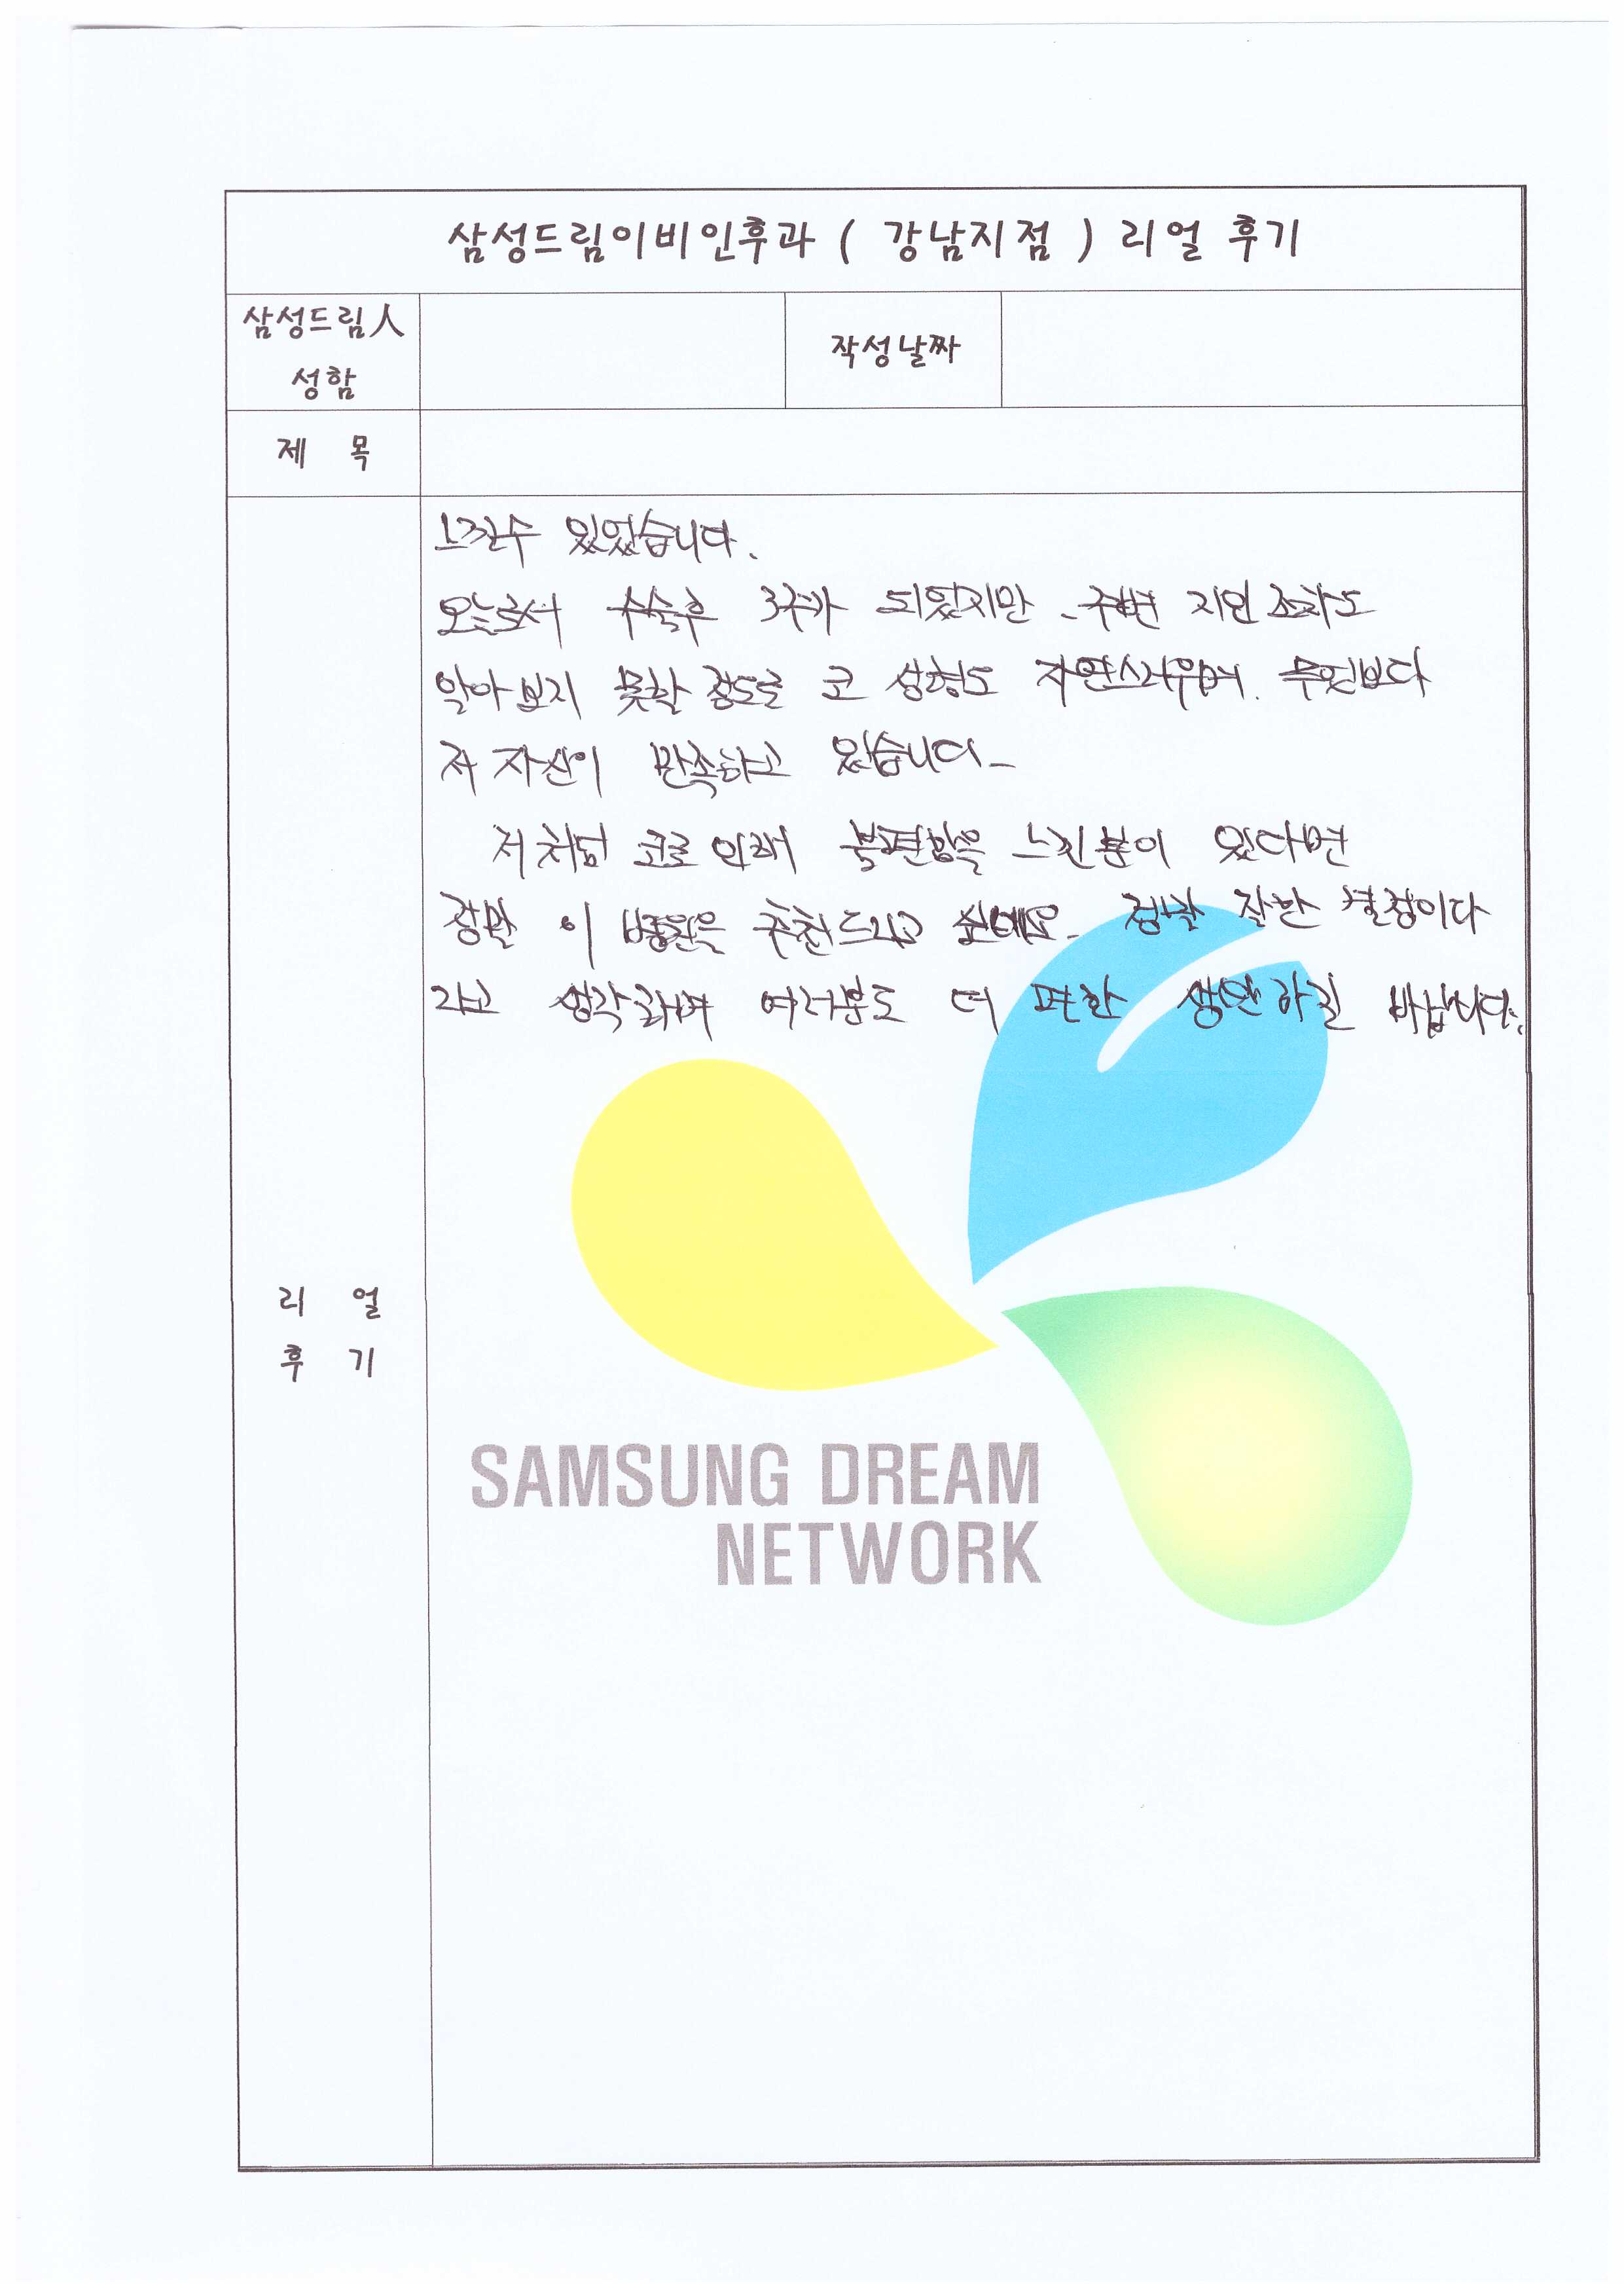 삼성드림이비인후과 ( 강남지점 ) 리얼 후기
삼성드림人
성함
작성날짜
제 목
느낄수 있었습니다.
오늘로서 수술후 3주가 되었지만 주변 지인 조차도
알아 보지 못할 정도로 코 성형도 자연스러우며. 무엇보다
저 자신이 만족하고 있습니다
저 처럼 코로 인해 불편함을 느낀 분이 있다면
정말 이 병원을 추천드리고 싶네요. 정말 잘한 결정이다
라고 생각하며 여러분도 더 편한 생활 하길 바랍니다.
리 얼
후 기
SAMSUNG DREAM
NETWORK